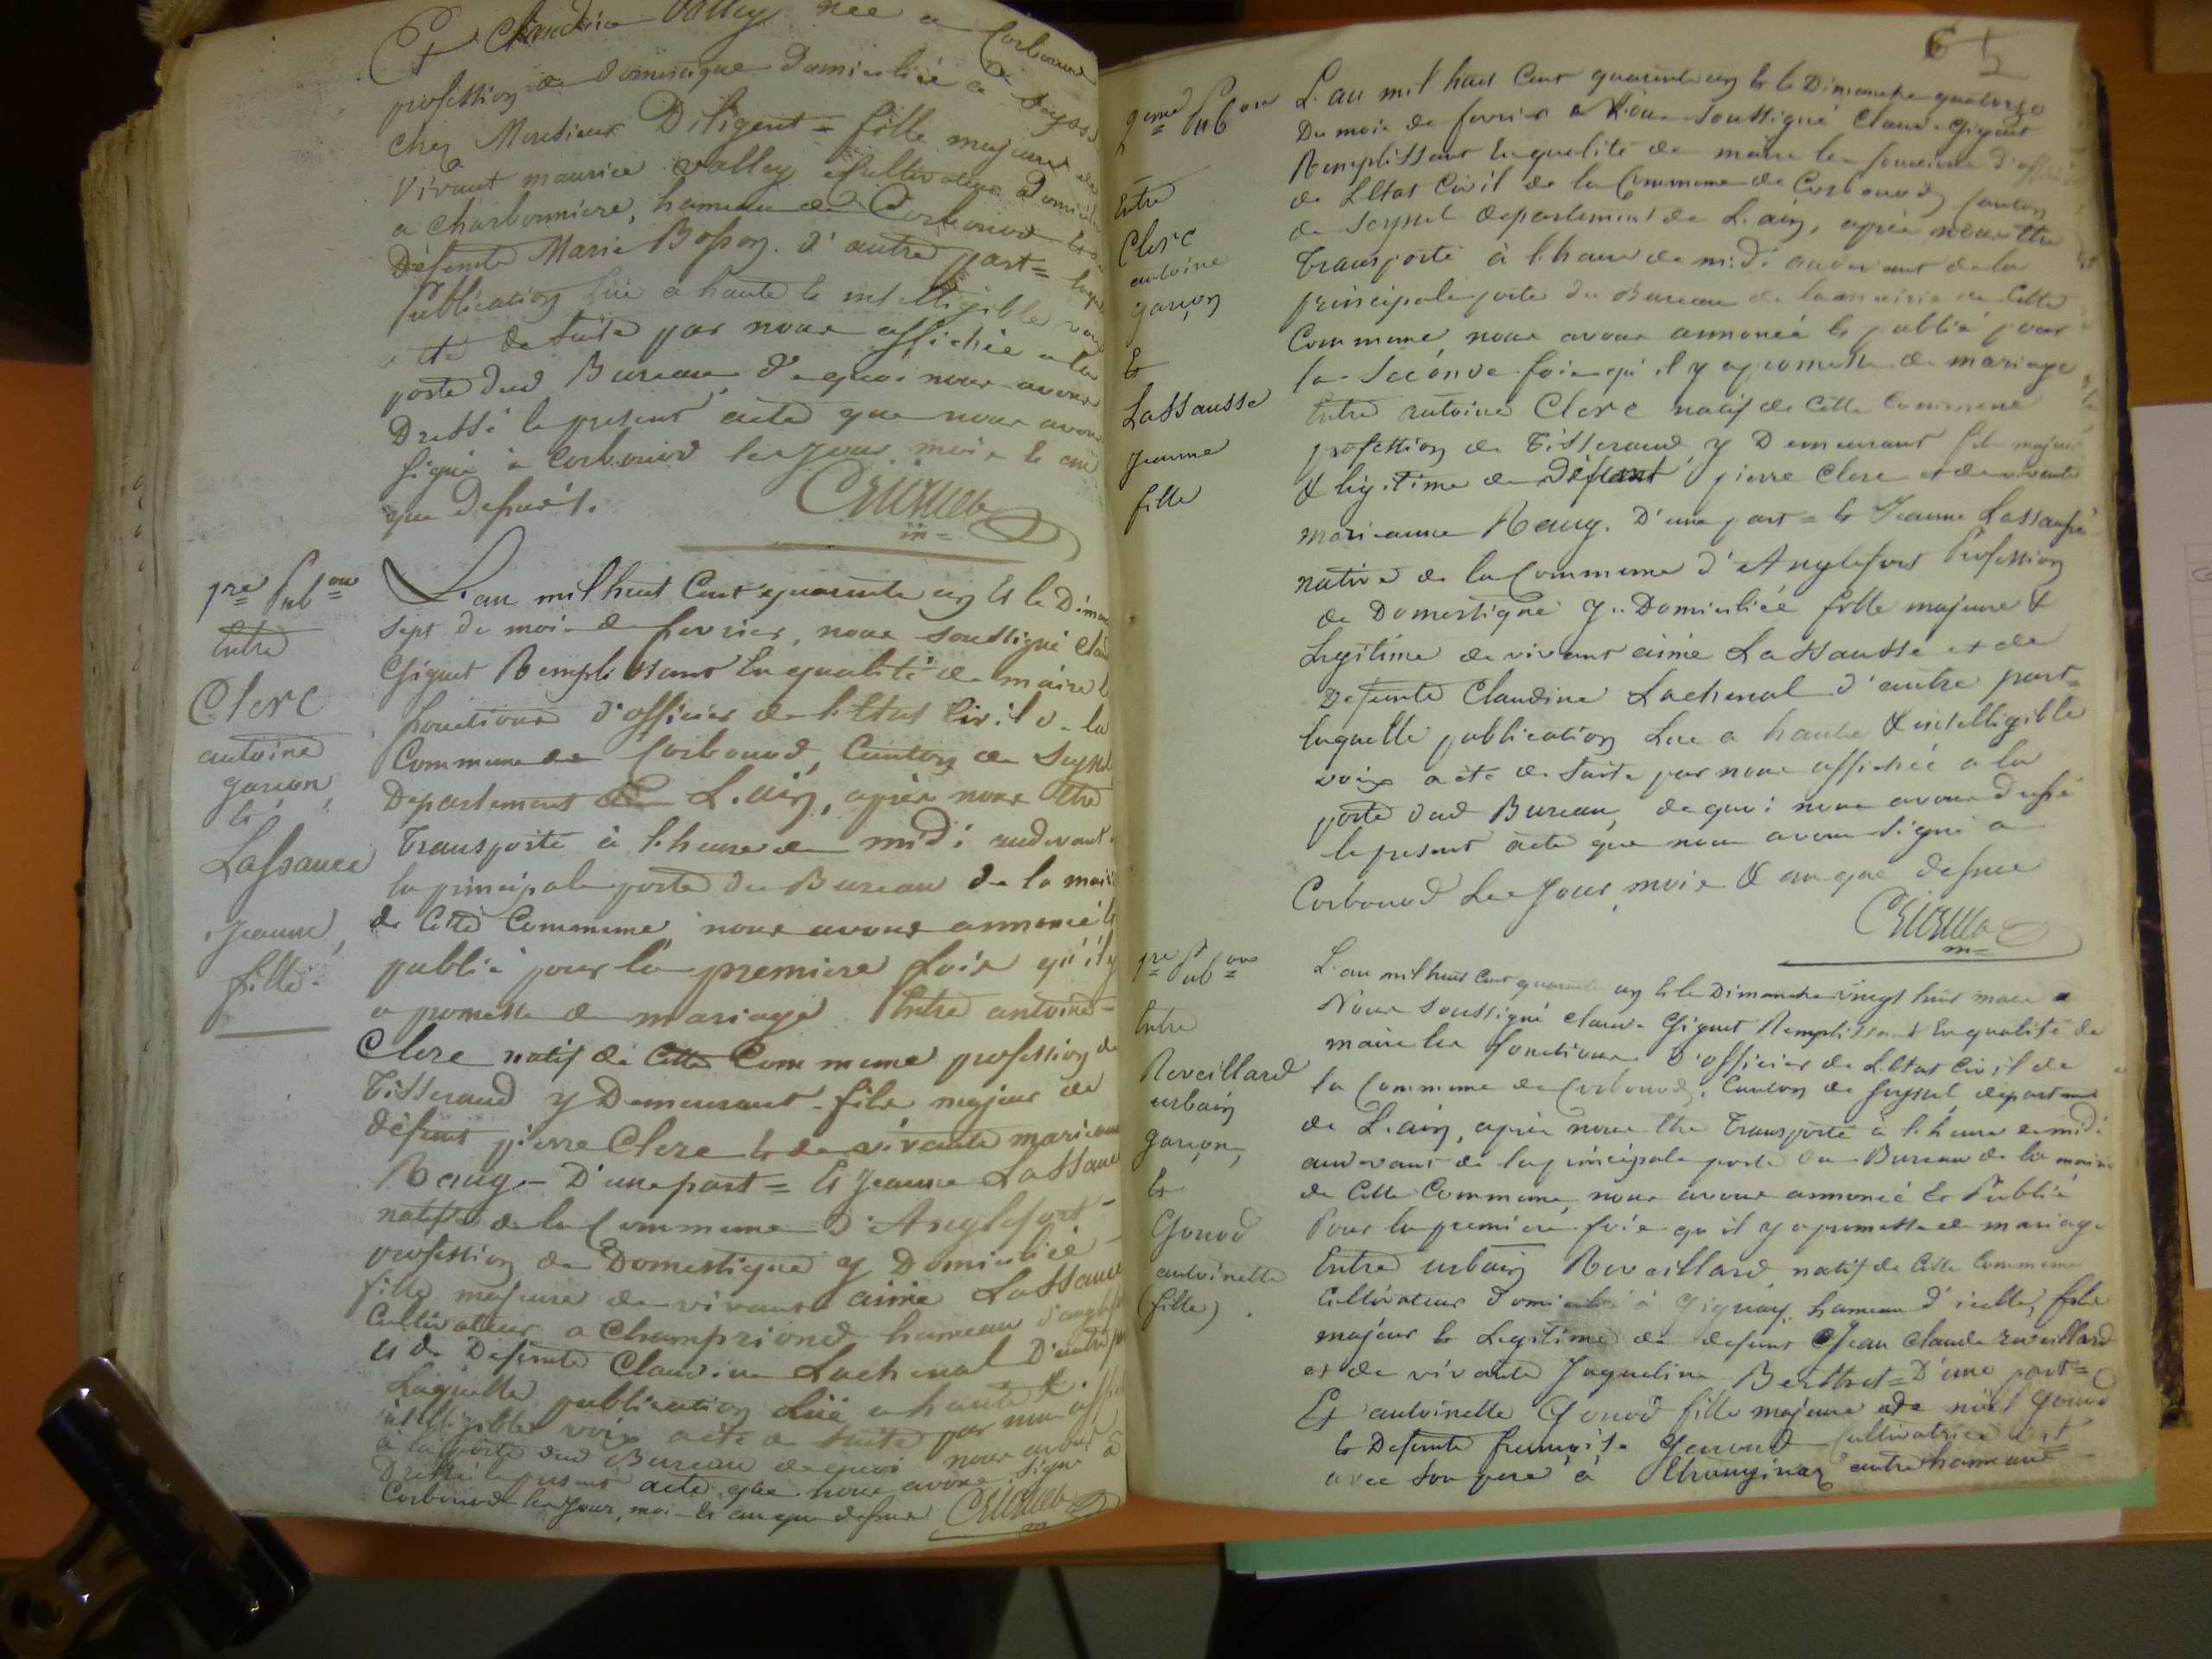 Et Claudine Valley née a Corbonod
profession de domestique domiciliée a Seyssel
chez Monsieur Diligent = fille majeure de
vivant maurice valley cultivateur domicilié
a charbonniere, hameau de Corbonod et de
Défunte Marie Bosson. d'autre part = laquelle
Publication lüe a haute et intelligible voix
a été de suite par nous affichée a la
porte dud Bureau, de quoi nous avons
Dressé le present acte que nous avons
signé à Corbonod les jour, mois et an
que dessus.
1re Pubon
Entre
Clerc
antoine
garçon
et
Lassauce
Jeanne,
fille.
L'an mil huit Cent quarante un et le Dimanche
sept du mois de fevrier, nous soussigné Claude
Giguet Remplissant En qualité de maire les
fonctions d'officier de l'Etat Civil de la
Commune de Corbonod, Canton de Seyssel
Département de L'ain, après nous être
Transporté à l'heure de midi audevant de
la principale porte du Bureau de la mairie
de Cette Commune, nous avons annoncé et
publié pour la premiere fois qu'il y
a promesse de mariage Entre antoine
Clerc natif de Cette Commune profession de
Tisserand y Demeurant fils majeur de
défunt pierre Clerc et de vivante marieanne
Reug - D'une part = Et Jeanne Lassauce
native de la Commune d'Anglefort
profession de Domestique y Domiciliée
fille majeure de vivant aimé Lassauce
Cultivateur a Champriond hameau d'anglefort
et de Defunte Claudine Lachenal D'autre part
Laquelle publication lüe a haute &
intelligible voix a été de suite par nous affichée
à la porte dud Bureau de quoi nous avons
Dressé le present acte, que nous avons signé à
Corbonod les jour, mois et an que dessus
6 5
2eme Pubon
Entre
Clerc
antoine
garçon
Et
Lassausse
Jeanne
fille
L'an mil huit Cent quarante un et le Dimanche quatorze
Du mois de fevrier Nous soussigné Claude Giguet
Remplissant En qualité de maire les fonctions d'officier
de L'Etat Civil de la Commune de Corbonod, Canton
de Seyssel departement de L'ain, après nous être
Transporté à l'heure de midi audevant de la
principale porte du Bureau de la mairie de Cette
Commune, nous avons annoncé et publié pour
la Seconde fois qu'il y a promesse de mariage
Entre antoine Clerc natif de Cette Commune
profession de Tisserand, y Demeurant fils majeur
& légitime de Défunt pierre Clerc et de vivante
marieanne Reug. D'une part = et Jeanne Lassausse
native de la Commune d'Anglefort Profession
de Domestique y Domiciliée fille majeure &
Legitime de vivant aimé Lassausse et de
Defunte Claudine Lachenal d'autre part =
laquelle publication Lue a haute & intelligible
voix a été de suite par nous affichée a la
porte dud Bureau, de quoi nous avons dressé
le present acte que nous avons signé a
Corbonod Les Jour, mois & an que dessus
1re Pubon
Entre
Reveillard
urbain
garçon,
Et
Gonod
antoinette
(fille).
L'an mil huit Cent quarante un et le Dimanche vingt huit mars
Nous soussigné Claude Giguet Remplissant En qualité de
maire les fonctions d'officier de L'Etat Civil de
la Commune de Corbonod, Canton de Seyssel departement
de L'ain, après nous être Transporté à l'heure de midi
audevant de la principale porte du Bureau de la mairie
de Cette Commune, nous avons annoncé et Publié
Pour la premiere fois qu'il y a promesse de mariage
Entre urbain Reveillard natif de Cette Commune
Cultivateur domicilié à Gignay hameau d'icelle, fils
majeur et Legitime de defunt Jean Claude reveillard
et de vivante Jaqueline Berthet = D'une part =
Et antoinette Gonod fille majeure de noël Gonod
et Defunte françoise Gonod Cultivatrice
avec son pere à autre hameau